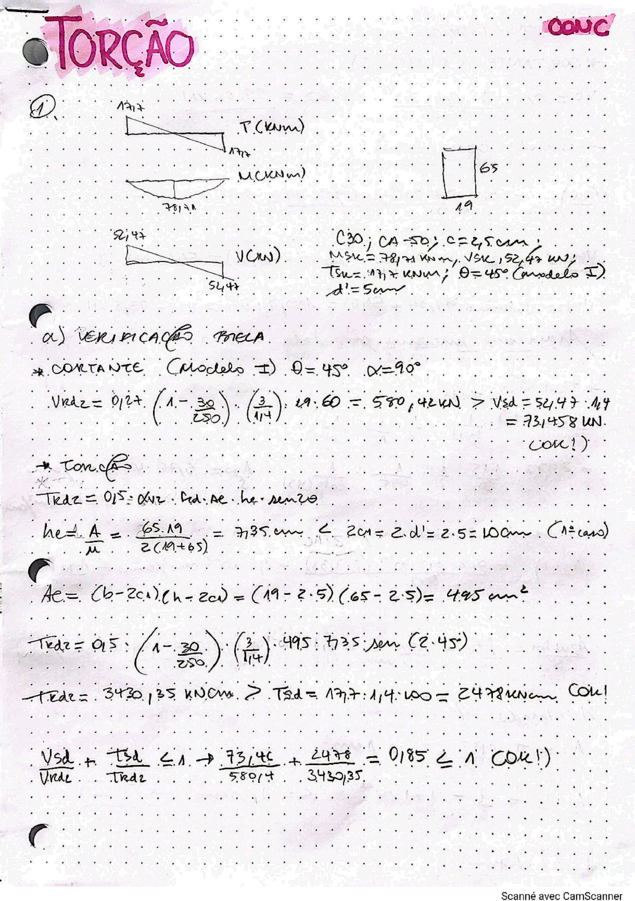 TORÇÃO
CONC
1.
17,7
T(KNm)
17,7
M(KNm)
78,71
65
19
52,47
V(KN)
52,47
C30; CA-50; c=2,5cm;
MSK=78,71 KNm, VSK, 52,47 KN;
TSK=17,7 KNm; θ=45° (modelo I)
d'=5cm
a) VERIFICAÇÃO BIELA
* CORTANTE (Modelo I) θ=45° α=90°
VRd2 = 0,27 · (1-30/250) · (3/1,4) · 19 · 60 = 580,42KN > Vsd = 52,47 · 1,4
= 73,458 KN
(OK!)
* TORÇÃO
TRd2 = 0,5 · αV2 · fcd · Ae · he · sen2θ
he = A/μ = 65·19/2(19+65) = 7,35 cm < 2c1 = 2·d' = 2·5 = 10cm (1º caso)
Ae = (b-2c1)(h-2c1) = (19-2·5)(65-2·5) = 495 cm²
TRd2 = 0,5 · (1-30/250) · (3/1,4) · 495 · 7,35 sen (2·45)
TRd2 = 3430,35 KNcm > Tsd = 17,7·1,4·100 = 2478 KNcm (OK!
Vsd/VRd2 + Tsd/TRd2 ≤ 1 → 73,46/580,4 + 2478/3430,35 = 0,85 ≤ 1 (OK!)
Scanné avec CamScanner